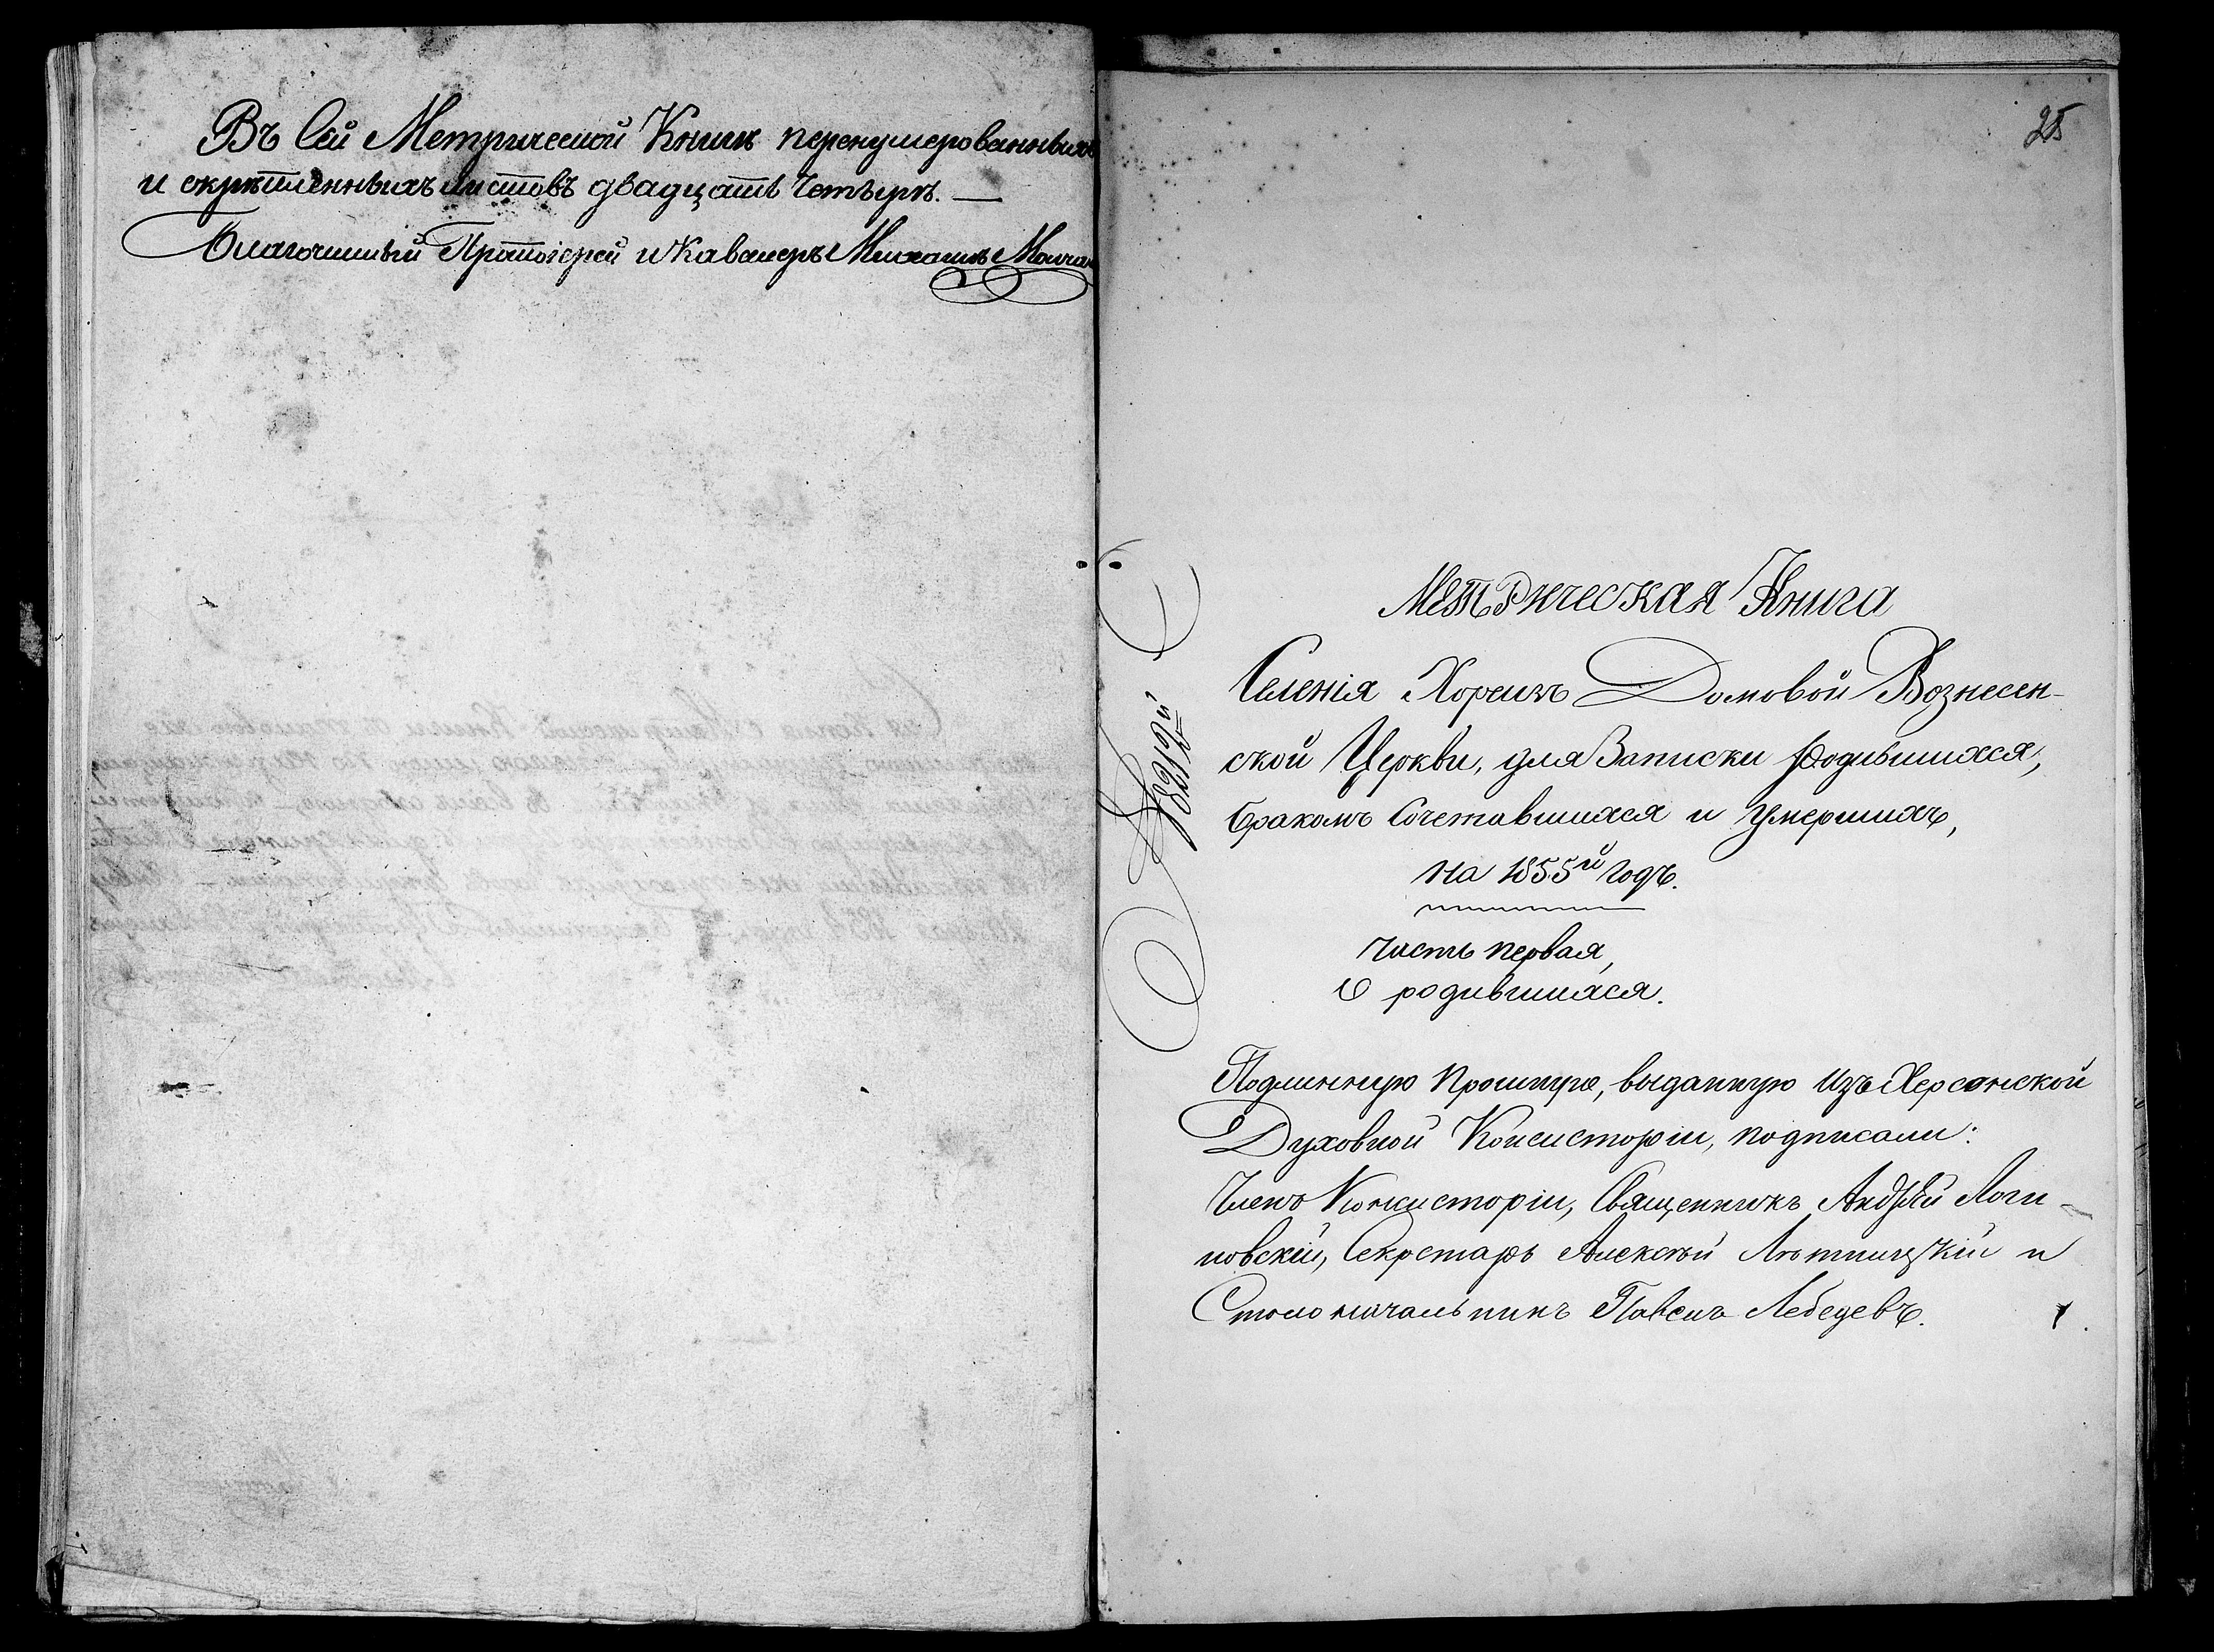 Въ Сей Метрической Книгѣ перенумерованныхъ
и скрѣпленныхъ листовъ двадцать четыре. —
Благочинный Протоіерей и Кавалеръ Михаилъ
25
Метрическая Книга
Селенія Хореизъ Домовой Вознесен-
ской Церкви, для Записки родившихся,
бракомъ Сочетавшихся и умершихъ,
на 1855й годъ.
Часть первая,
О родившихся.
Подлинную прошнуре, выданную изъ Херсонской
Духовной Консисторіи, подписали:
Членъ Консисторіи, Священникъ Андрей Логи-
новскій, Секретарь Алексѣй Лѣтницкій и
Столоначальникъ Павелъ Лебедевъ.